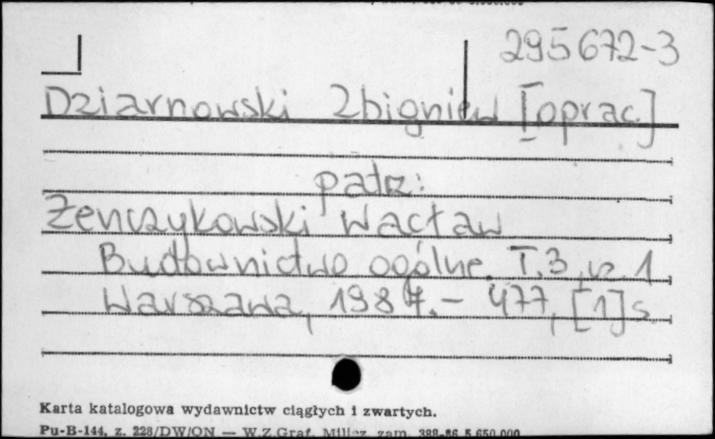 295672-3
Dziarnowski Zbigniew [oprac.]
patrz:
Żenczykowski Wacław
Budownictwo ogólne. T.3, cz. 1
Warszawa, 1987. - 477, [1] s.
Karta katalogowa wydawnictw ciągłych i zwartych.
Pu-B-144, z. 228/DW/ON — W.Z.Graf. Milicz zam. 388-86 5.650.000